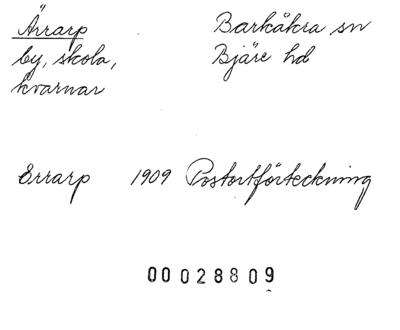 Ärrarp Barkåkra sn
by, skola, Bjäre hd
kvarnar
Errarp 1909 Postortförteckning
00 028809